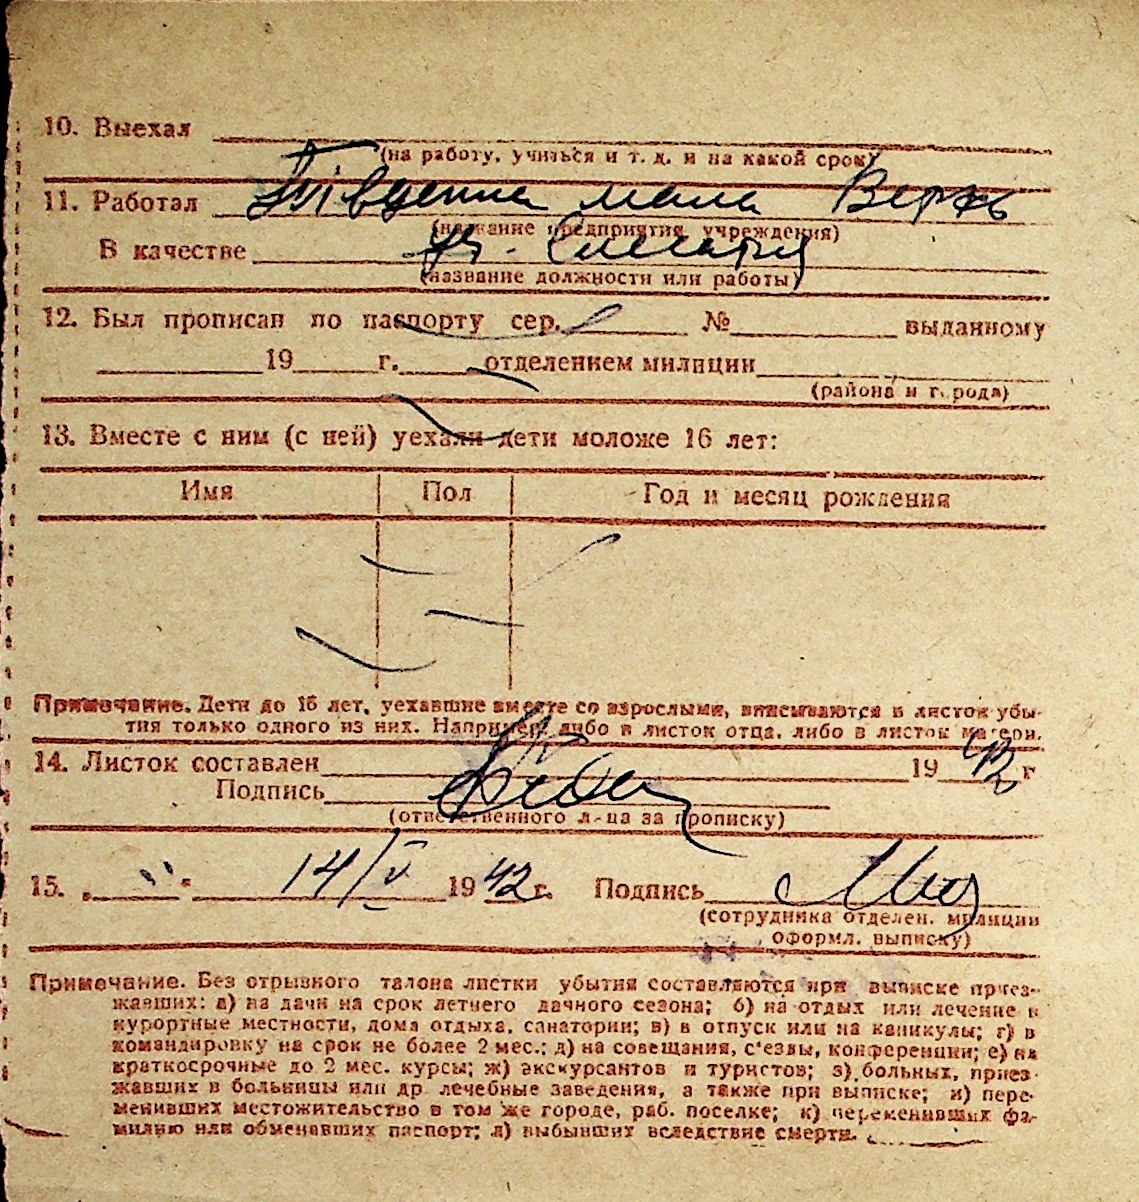 10. Выехал
(на работу, учиться и т. д. и на какой срок)
11. Работал
(название предприятия, учреждения)
В качестве
(название должности или работы)
12. Был прописан по паспорту сер. № выданному
19 г. отделением милиции
(района и города)
13. Вместе с ним (с ней) уехали дети моложе 16 лет:
Имя Пол Год и месяц рождения
Примечание. Дети до 16 лет, уехавшие вместе со взрослыми, вписываются в листок убы-
тия только одного из них. Например, либо в листок отца, либо в листок матери.
14. Листок составлен 1942 г
Подпись
(ответственного л-ца за прописку)
15. „ “ 14/V 1942 г. Подпись
(сотрудника отделен. милиции
оформл. выписку)
Примечание. Без отрывного талона листки убытия составляются при выписке приез-
жавших: а) на дачи на срок летнего дачного сезона; б) на отдых или лечение в
курортные местности, дома отдыха, санатории; в) в отпуск или на каникулы; г) в
командировку на срок не более 2 мес.; д) на совещания, с'езды, конференции; е) на
краткосрочные до 2 мес. курсы; ж) экскурсантов и туристов; з) больных, приез-
жавших в больницы или др лечебные заведения, а также при выписке; и) пере-
менивших местожительство в том же городе, раб. поселке; к) переменивших фа-
милию или обменявших паспорт; л) выбывших вследствие смерти.